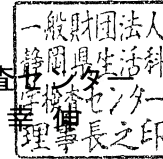 一般財団法人
静岡県生活科
学検査センター
理事長之印
査センター
幸 伸